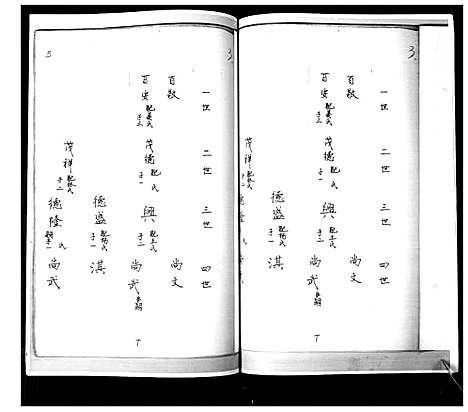 3.
一世 二世 三世 四世
百敬 尚文
百安 配姜氏 子三 茂德 配氏 子一 興 配王氏 子二 尚武 出嗣
德盛 配楊氏 子一 淇
茂祥 子二
7
3
一世 二世 三世 四世
百敬 尚文
百安 配姜氏 子三 茂德 配氏 子一 興 配王氏 子二 尚武 出嗣
德盛 配楊氏 子一 淇
茂祥 子二 德隆 氏 尚武
5
7